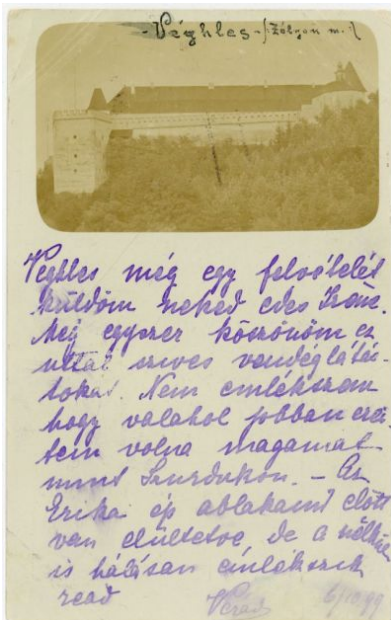 Véghles (Zólyom m.)
Véghles még egy felvételét
küldöm neked edes
Még egyszer köszönöm ez
uttal szives vendéglátás-
tokat. Nem emlékszem
hogy valahol jobban erez-
tem volna magamat
mint Szurdukon. – Az
Erika ép ablakaim előtt
van elültetve de a nélkül
is hálásan emlékszik
read